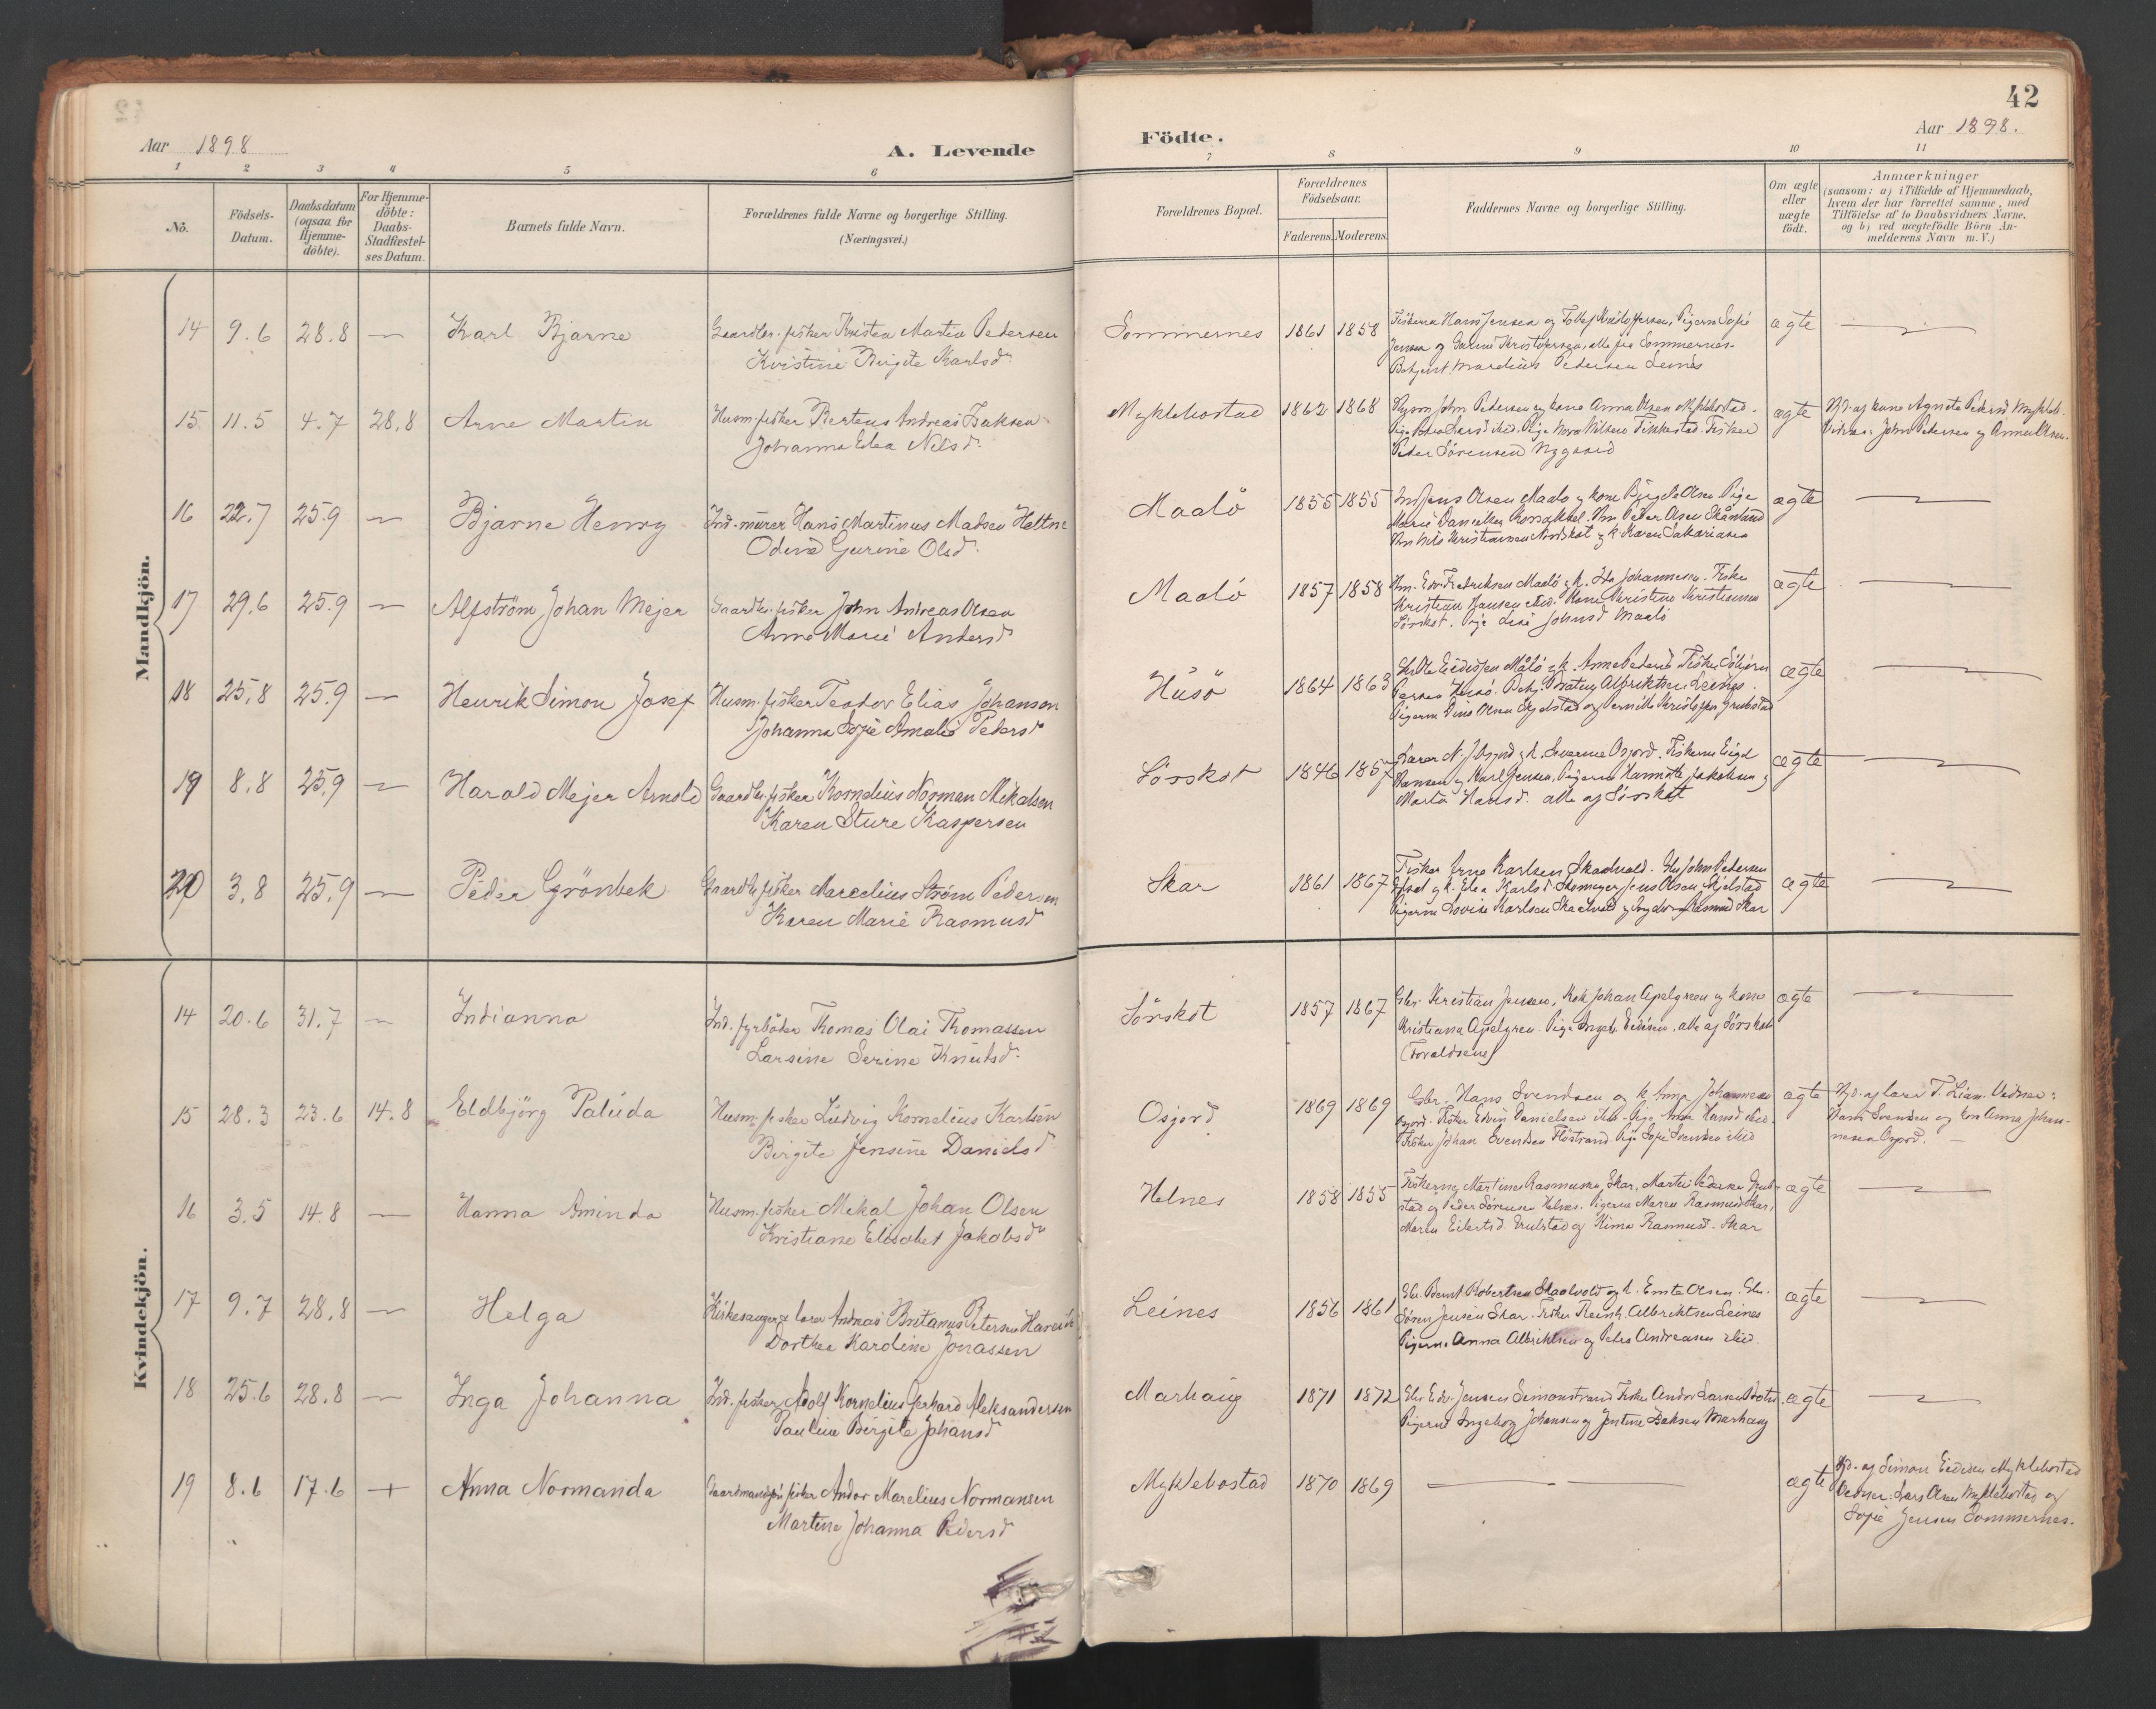 42
Aar 1898
A. Levende
Födte.
Aar 1898.
1 2 3 4 5 6 7 8 9 10 11
No.
Födsels-Datum.
Daabsdatum (ogsaa for Hjemme-döbte).
For Hjemme-döbte: Daabs-Stadfæstel-ses Datum.
Barnets fulde Navn.
Forældrenes fulde Navne og borgerlige Stilling.
(Næringsvei.)
Forældrenes Bopæl.
Forældrenes Födselsaar.
Faderens. Moderens.
Faddernes Navne og borgerlige Stilling.
Om ægte eller uægte födt.
Anmærkninger
(saasom: a) i Tilfælde af Hjemmedaab,
hvem der har forrettet samme, med
Tilföielse af to Daabsvidners Navne.
og b) ved uægtefödte Börn An-
melderens Navn m.V.)
Mandkjön.
14 9.6 28.8 — Karl Bjarne
Gaardbr. fisker Kristen Martin Pedersen
Kristine Birgite Karlsd.
Sommernes 1861 1858
Fiskerne Hans Jensen og Pigerne Sofie
Jensen og Kristofersen, alle fra Sommernes.
Marelius Pedersen Leines
ægte —
15 11.5 4.7 28.8 Arne Martin
Husm. fisker Berteus Andreas Isaksen
Johanna Edea Nilsd.
Myklebostad 1862 1868
John Pedersen og kone Anna Olsen Myklebostad.
Pige Larsd ibid. Pige Nilsen Finkestad. Fisker
Peder Sörensen Nygaard
ægte
Hjd. af kone Agnete Pedersd Mykleb.
Vidner: John Pedersen og Anna Olsen.
16 22.7 25.9 — Bjarne Henry
Ind. murer Hans Martinus Madsen Heltne
Odine Gurine Olsd.
Maalö 1855 1855
Jens Olsen Maalö og kone Birgite Olsen Pige
Marie Danielsen Peder Olsen Skånland
Nils Kristiansen Nordskot og k. Karen Sakariasen
ægte —
17 29.6 25.9 — Alfström Johan Mejer
Gaardbr. fisker John Andreas Olsen
Anne Marie Andersd
Maalö 1857 1858
Edv. Fredriksen Maalö og k. Ida Johannesen. Fisker
Kristian Hansen ibid. Kone Kristine Kristiansen
Sörskot. Pige Lise Johnsd Maalö
ægte —
18 25.8 25.9 — Henrik Simon Josef
Husm. fisker Teodor Elias Johansen
Johanna Sofie Amalie Pedersd
Husö 1864 1863
Måló og k. Anne Pedersd Fisker
Husö. Albriktsen Leines.
Pigerne Olsen Skjelstad og Pernille Grubstad
ægte —
19 8.8 25.9 — Harald Mejer Arnold
Gaardbr. fisker Kornelius Norman Mikalsen
Karen Sture Kaspersen
Sörskot 1846 1857
Lærer N. og k. Osjord. Fiskerne
Hansen og Karl Jensen, Pigerne Jakobsen og
Marta Hansd. alle af Sörskot
ægte —
20 3.8 25.9 — Peder Grönbek
Gaardbr. fisker Marcelius Ström Pedersen
Karen Marie Rasmusd
Skar 1861 1867
Fisker Arne Karlsen Skaalvald. Gbr. John Pedersen
og k. Elea Karlsd Skomager Jens Olsen Skjelstad
Pigerne Lovise Karlsen Skaalvald og Rasmusd Skar
ægte —
Kvindekjön.
14 20.6 31.7 — Indianna
Ind. fyrböder Thomas Olai Thomassen
Larsine Serine Knutsd.
Sörskot 1857 1867
Gbr. Kristian Jensen, Johan Apelgren og kone
Kristiana Apelgren. Pige alle af Sörskot
(Forældrene)
ægte —
15 28.3 23.6 14.8 Eldbjörg Palida
Husm. fisker Ludvig Kornelius Karlsen
Birgite Jensine Danielsd
Osjord 1869 1869
Gbr. Hans Svendsen og k. Anna Johannesen
Osjord. Fisker Edvin Danielsen ibid. Pige Anna Hansd ibid.
Fisker Johan Svendsen Flöstrand. Pige Sofie Svendsen ibid
ægte
Hjd. af lærer T. Lian. Vidner:
Hans Svendsen og kone Anna Johan-
nesen Osjord. —
16 3.5 14.8 — Hanna Aminda
Husm. fisker Mikal Johan Olsen
Kristiane Elisabet Jakobsd
Helnes 1858 1855
Fiskerne Martines Rasmussen, Skar, Martin Pedersen Grub-
stad og Peder Sörensen Helnes. Pigerne Maren Rasmusd Skar,
Maren Eilertsd. Grubstad og Rasmusd. Skar
ægte —
17 9.7 28.8 — Helga
Kirkesanger og lærer Andreas Britanus Petersen Hareide
Dorthea Karoline Jonassen
Leines 1856 1861
Gbr. Bernt Robertsen Skaalvold og k. Emta Olsen. Gbr.
Sören Jensen Skar. Fisker Albrektsen Leines
Pigerne Anna Albriktsen og Petra Andreasen ibid.
ægte —
18 25.6 28.8 — Inga Johanna
Ind. fisker Adolf Kornelius Gerhard Aleksandersen
Pauline Birgite Johansd
Marhaug 1871 1872
Gbr. Edv. Jensen Simonstrand Fisker Andor Larsen
Pigerne Ingeborg Johansen og Jentine Isaksen Marhaug
ægte —
19 8.6 17.6 + Anna Normanda
Gaardmandssön fisker Andor Marelius Normansen
Martine Johanna Pedersd
Myklebostad 1870 1869
— —
ægte
Hjd. af Simon Myklebostad
Vidner: Lars Olsen Myklebostad og
Sofie Jensen Sommernes.